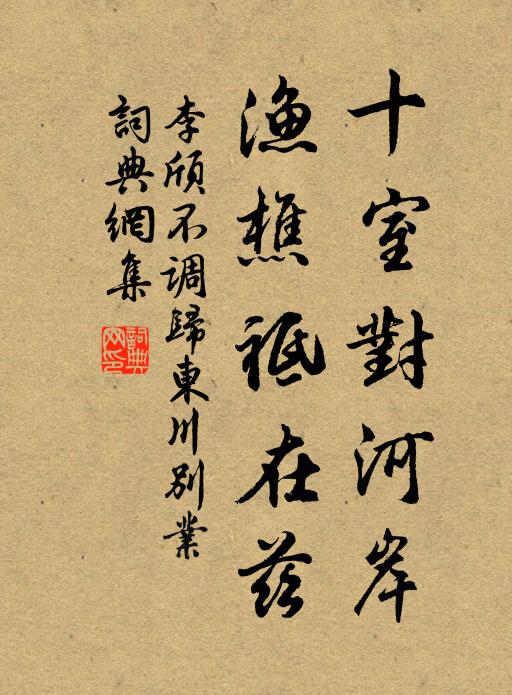 十室對河岸
漁樵祇在茲
李頎不調歸東川別業
詞典網集
詞典網印